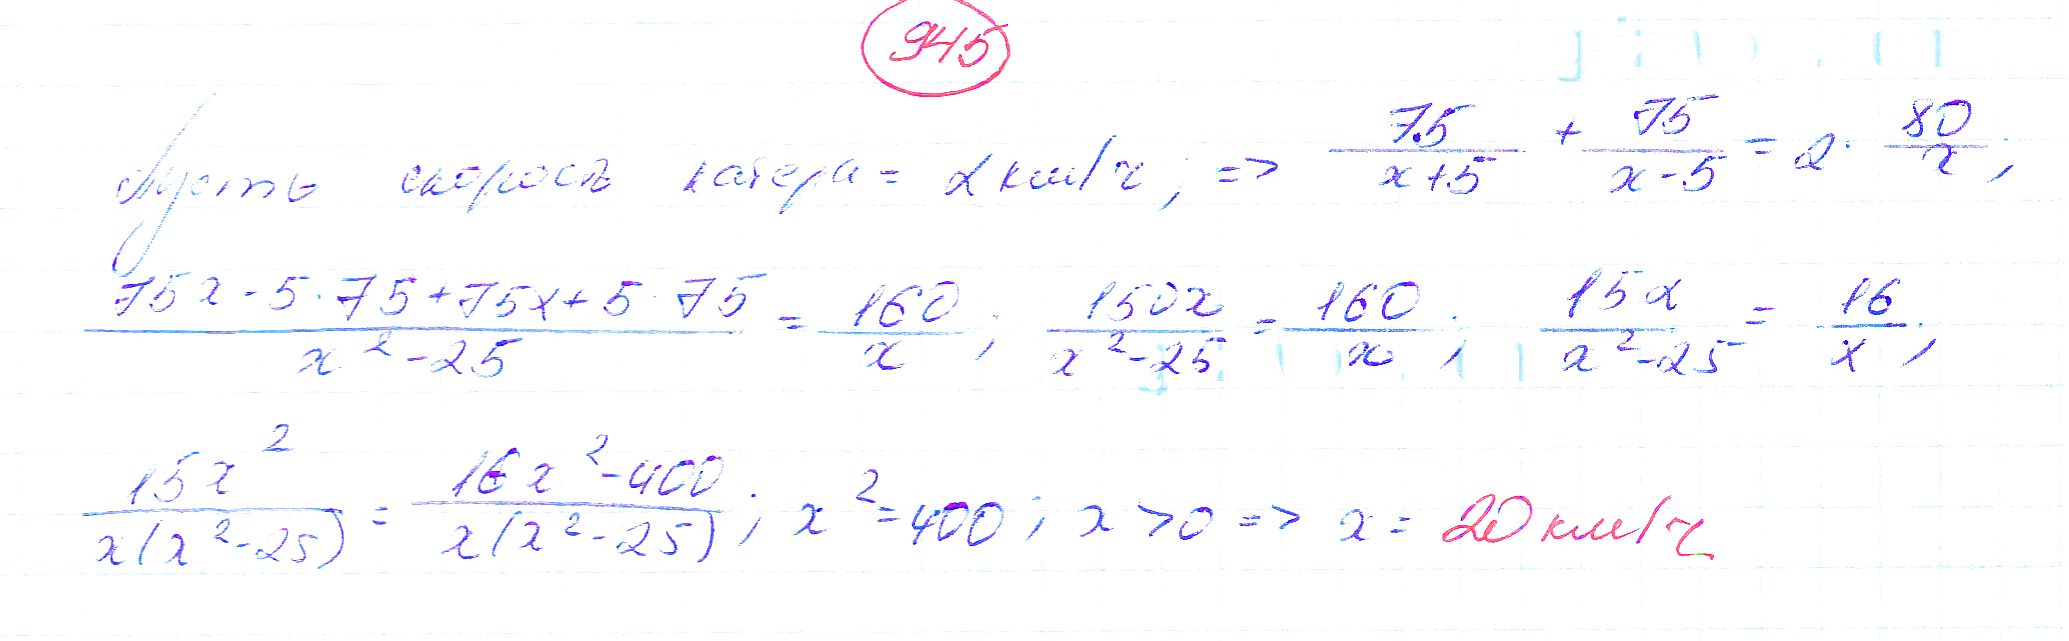 945
Пусть скорость катера = x км/ч; => 75/(x+5) + 75/(x-5) = 2 · 80/x;
(75x - 5·75 + 75x + 5·75)/(x² - 25) = 160/x; 150x/(x² - 25) = 160/x; 15x/(x² - 25) = 16/x;
15x²/(x(x² - 25)) = (16x² - 400)/(x(x² - 25)); x² = 400; x > 0 => x = 20 км/ч